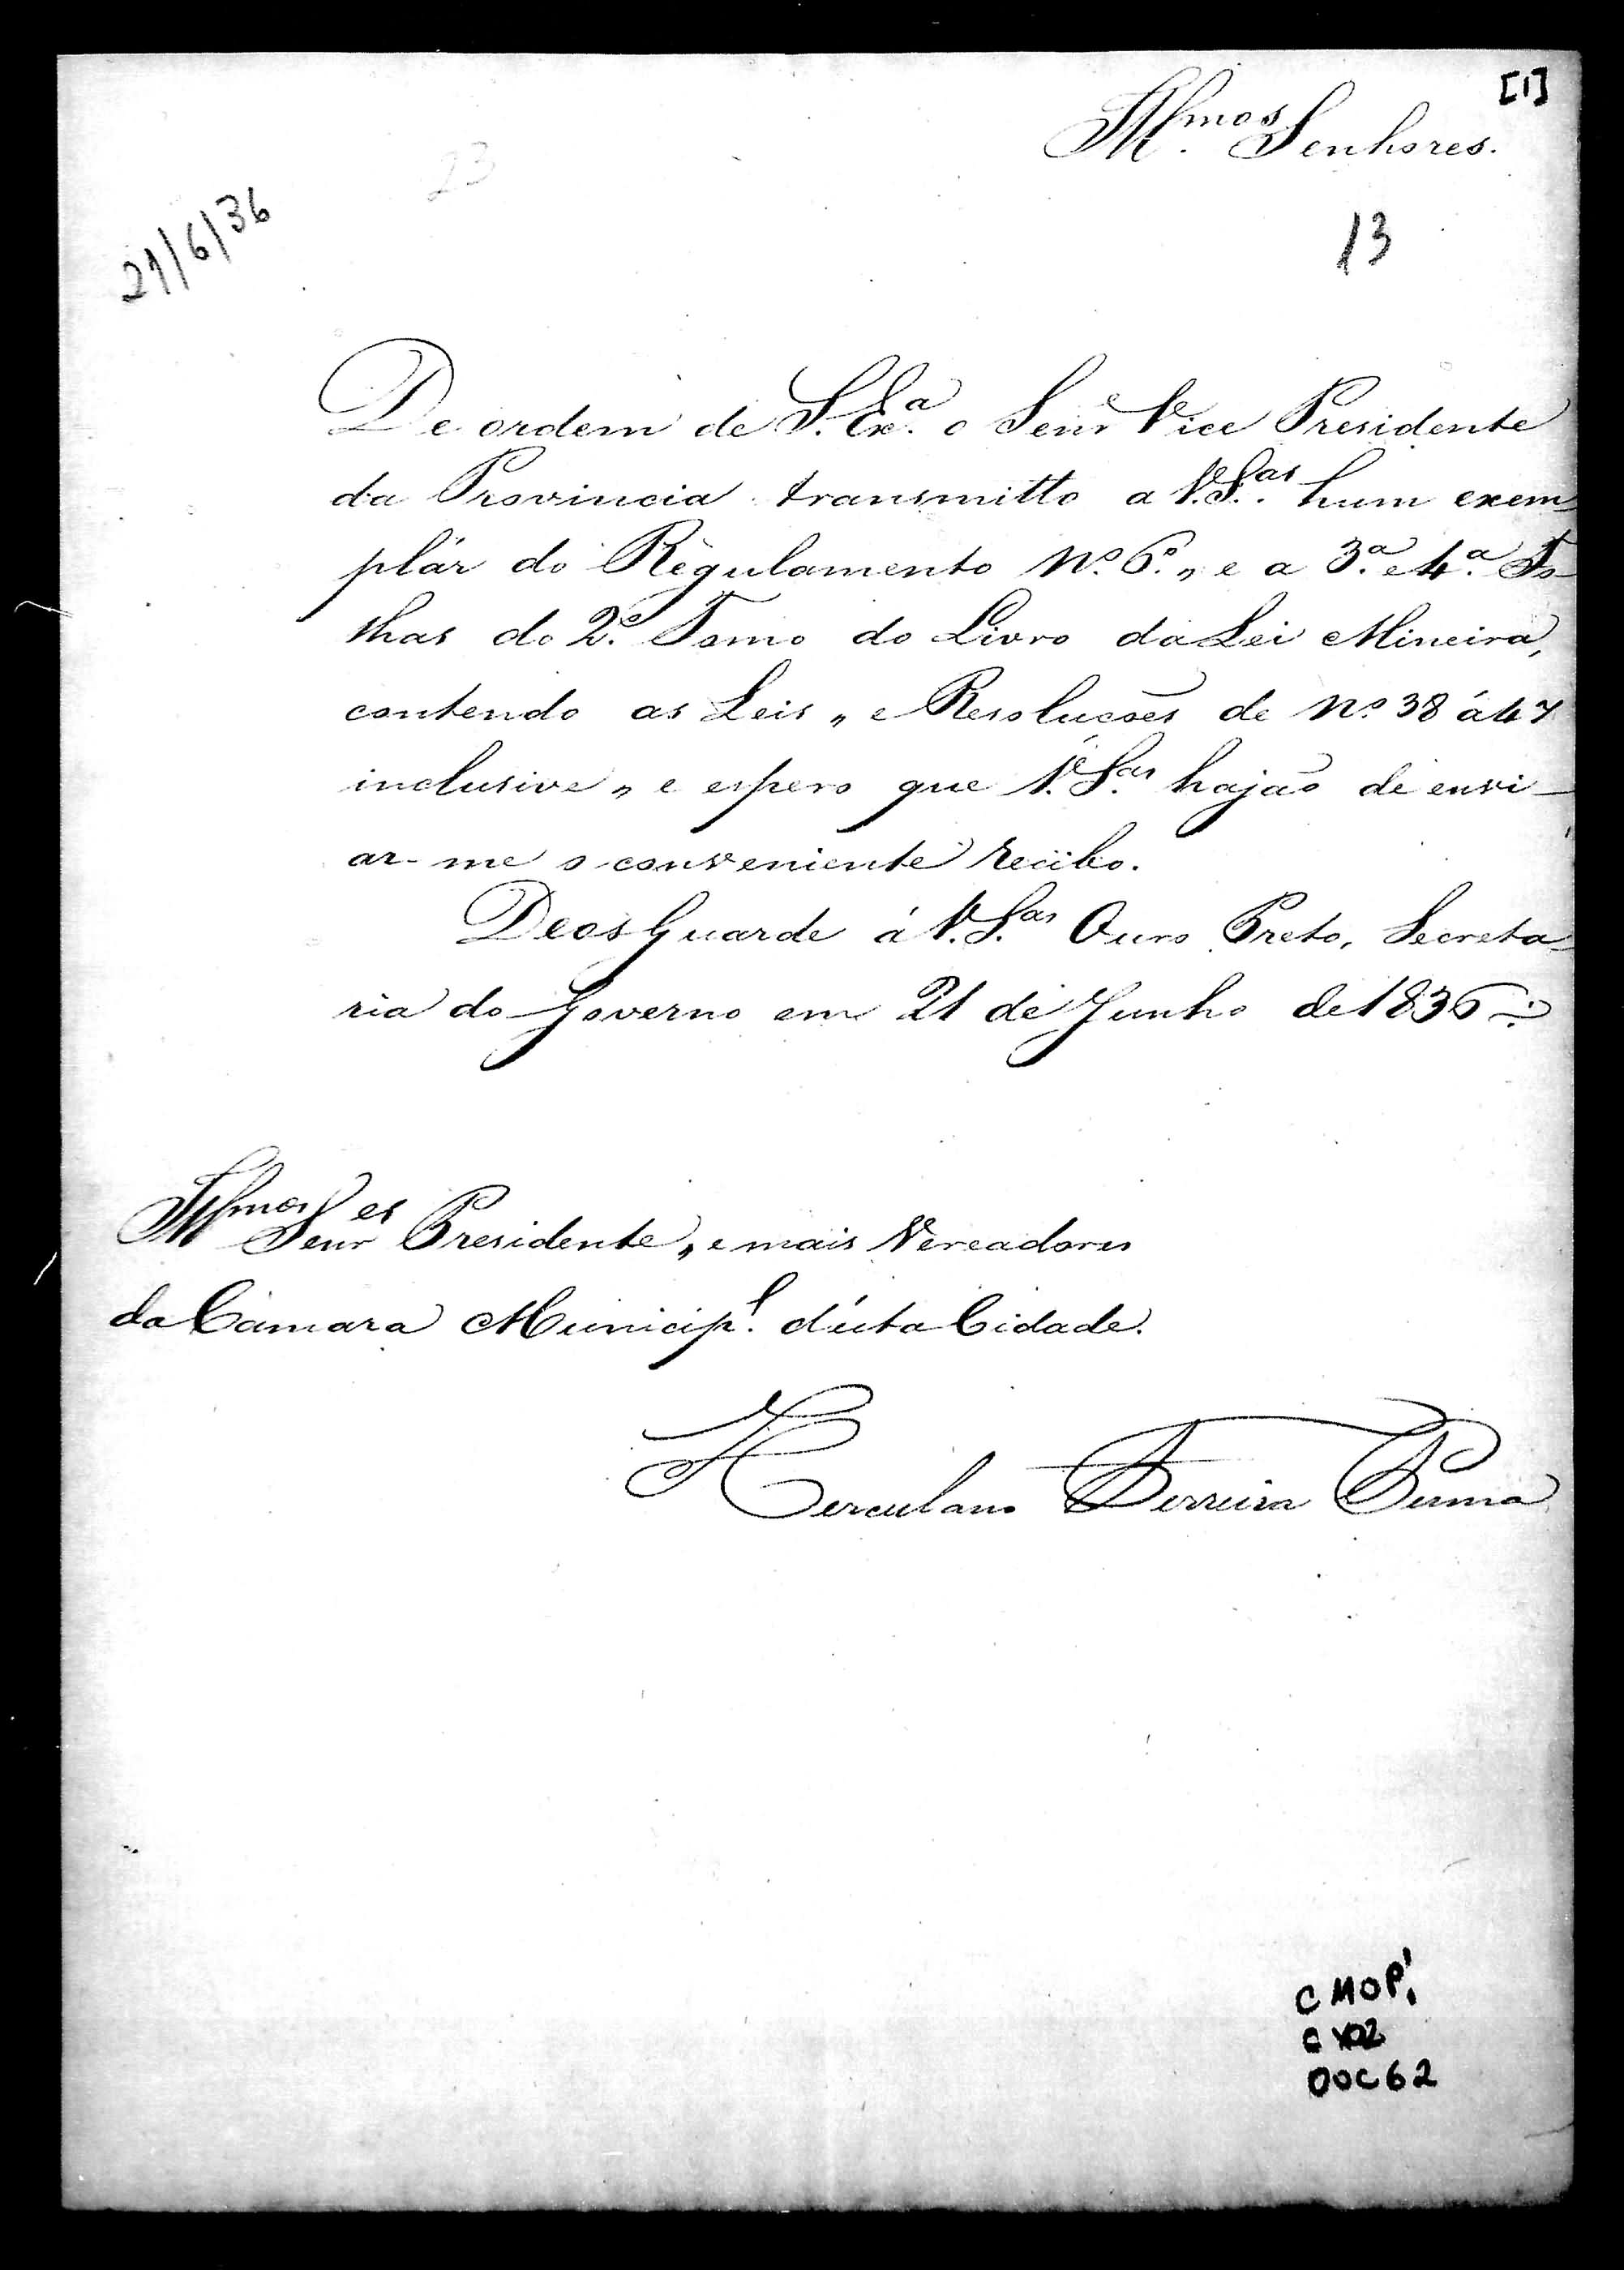 [1]
Illmos. Senhores.
23
21/6/36
13
De ordem de S. Exa. o Senr. Vice Presidente
da Provincia transmitto a V. Sas. hum exem=
plár do Regulamento No. 6o., e a 3a. e 4a. Fo-
lhas do 2o. Tomo do Livro da Lei Mineira,
contendo as Leis, e Resoluções de No. 38 á 47
inclusive, e espero que V. Sas. hajão de envi-
ar-me o conveniente recibo.
Deos Guarde á V. Sas. Ouro Preto, Secreta=
ria do Governo em 21 de Junho de 1836
Illmos. Senres. Presidente, e mais Vereadores
da Camara Municipl. d'esta Cidade.
Herculano Ferreira Penna
CMOP
CX02
DOC 62